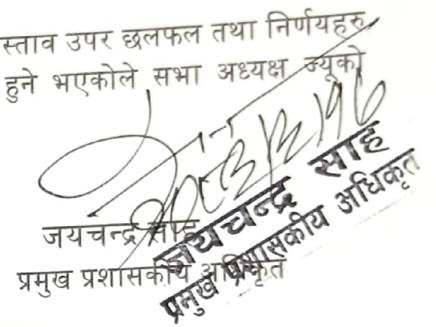 स्ताव उपर छलफल तथा निर्णयहरु
हुने भएकोले सभा अध्यक्ष ज्यूको
जयचन्द्र साह
प्रमुख प्रशासकीय अधिकृत
जयचन्द्र साह
प्रमुख प्रशासकीय अधिकृत